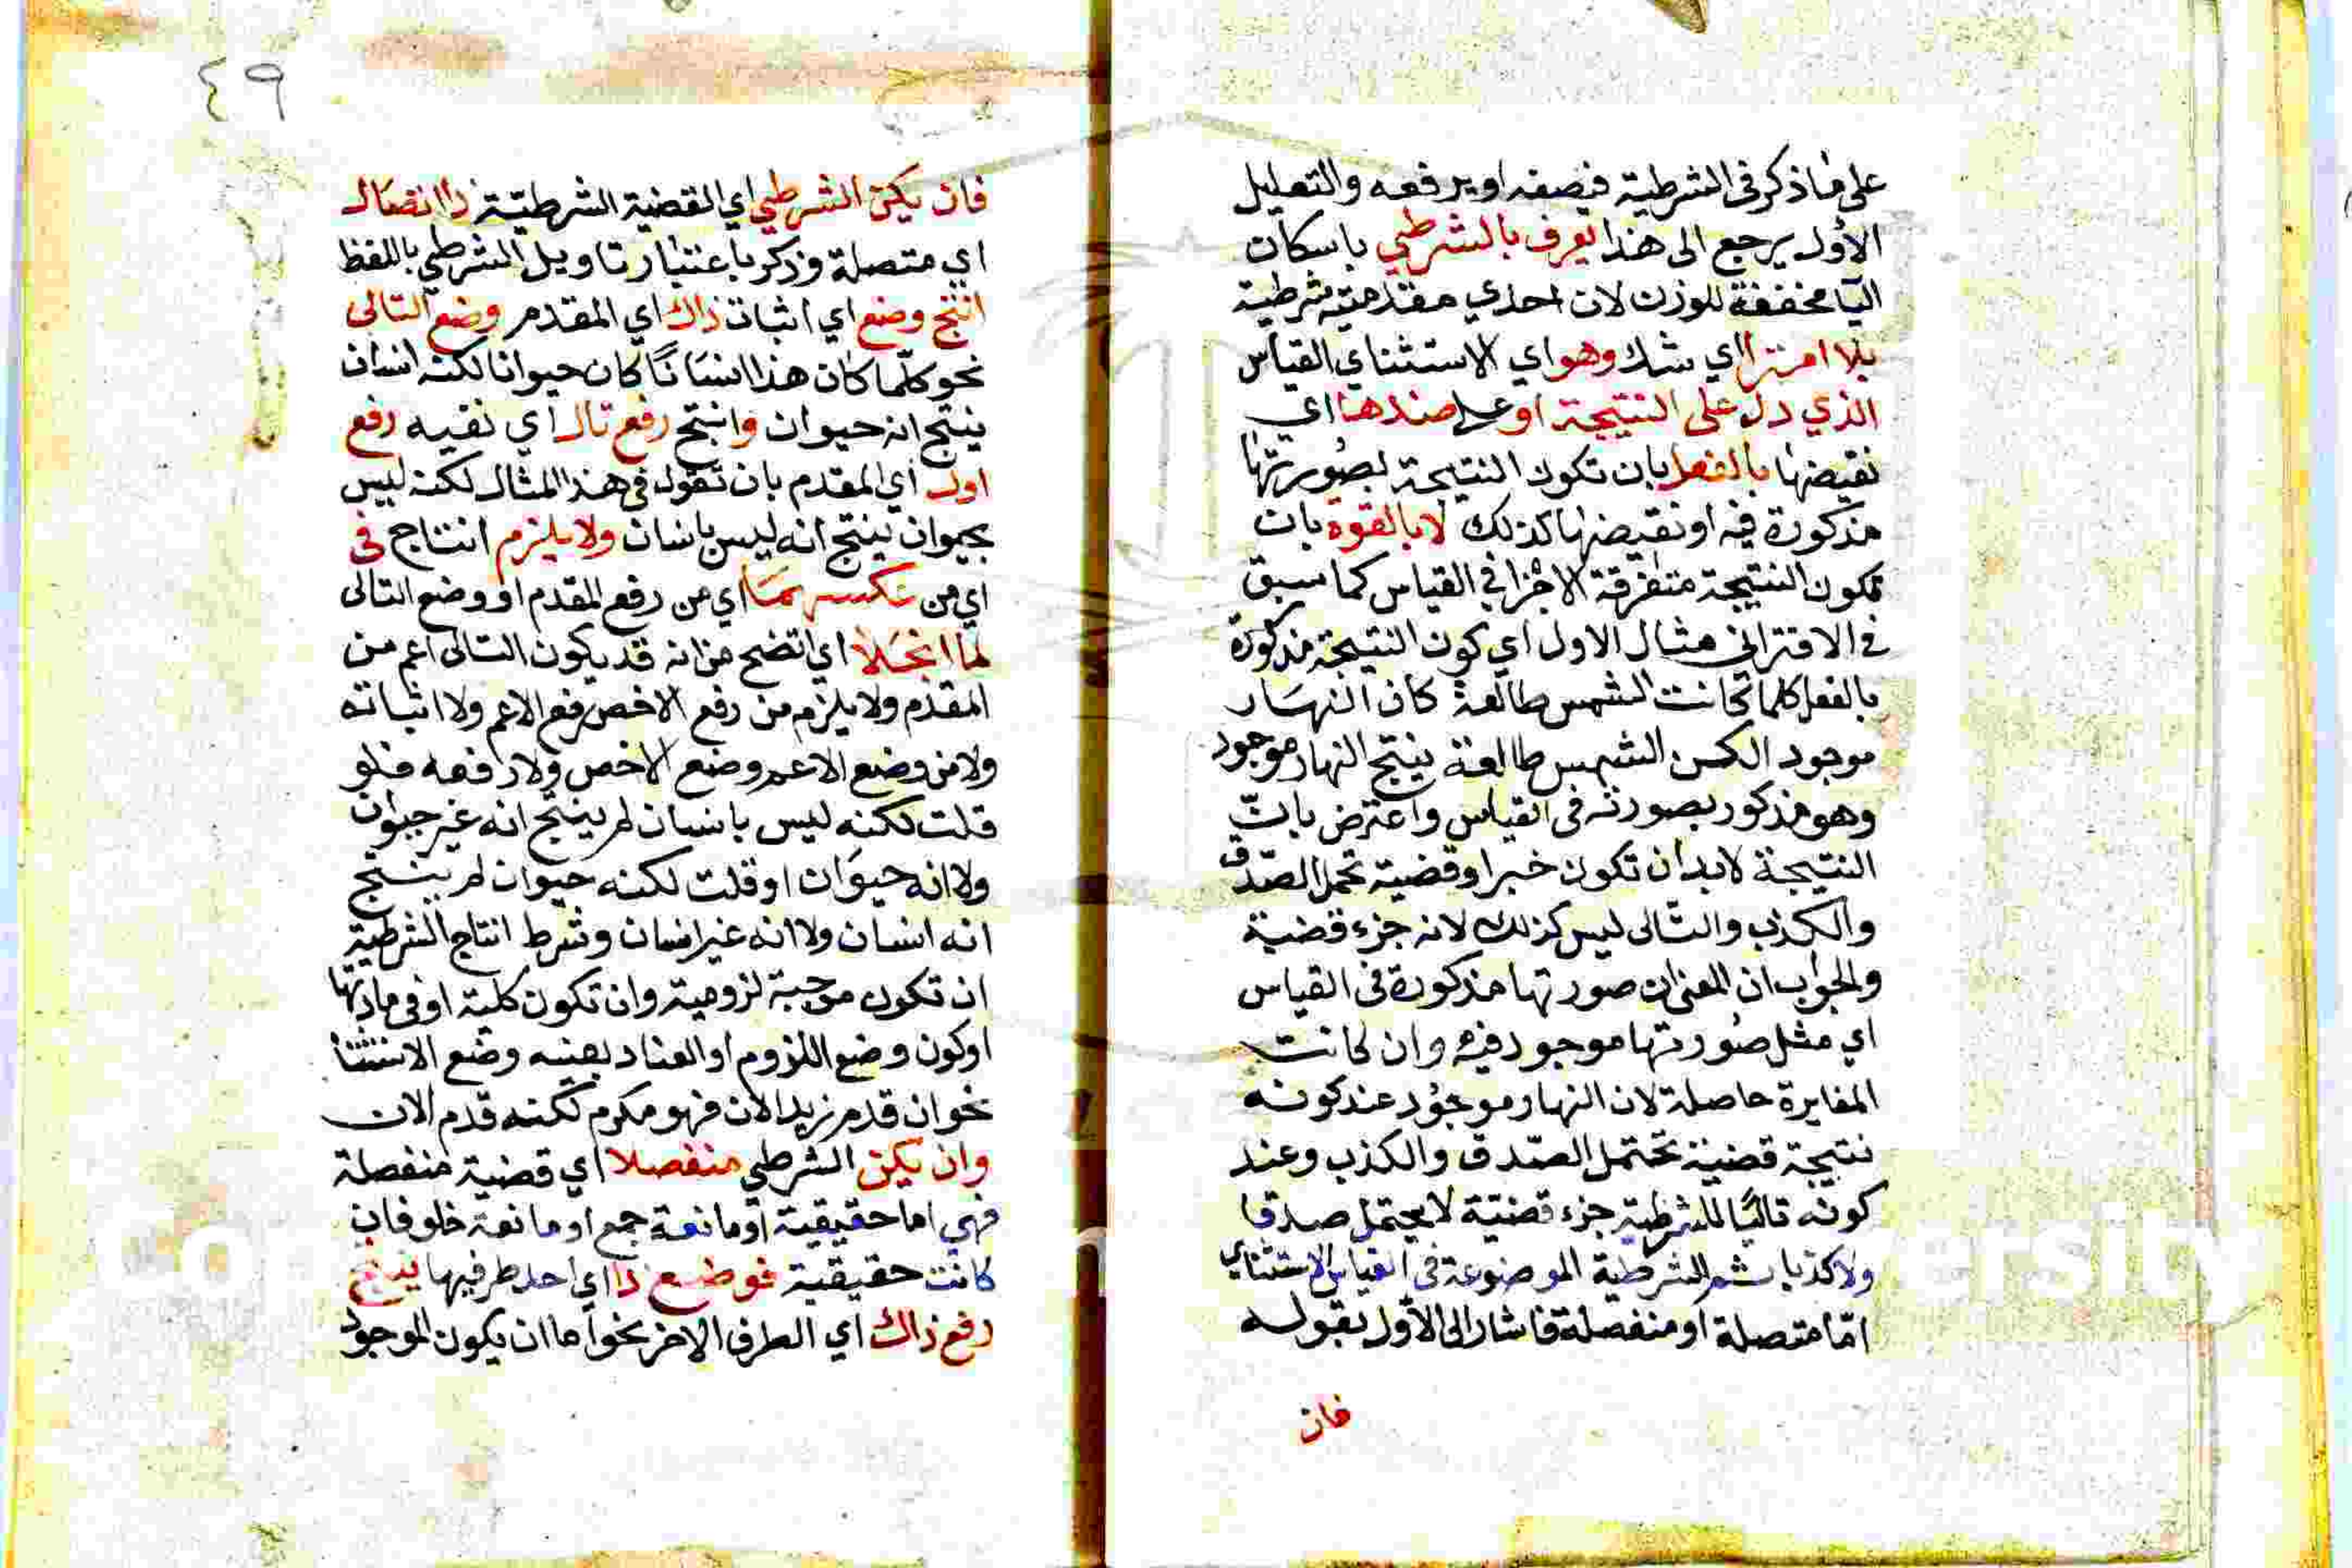 على ماذكر فى الشرطية فيصفه او يرفعه والتعليل
الأول يرجع الى هذا يعرف بالشرطي باسكان
اليا مخففة للوزن لان احدي مقدمتيه شرطية
بلا امترا اي شك وهو اي الاستثناي القياس
الذي دل على النتيجة او على ضدها اي
نقيضها بالفعل بان تكون النتيجة بصورتها
مذكورة فيه او نقيضها كذلك لا بالقوة بان
تكون النتيجة متفرقة الاجزا في القياس كما سبق
في الاقتراني مثال الاول اي كون النتيجة مذكورة
بالفعل كلما كانت الشمس طالعة كان النهار
موجود الكن الشمس طالعة ينتج النهار موجود
وهو مذكور بصورته فى القياس واعترض بانّ
النتيجة لابد ان تكون خبرا وقضية تحمل الصّدق
والكذب والتالى ليس كذلك لانه جزء قضية
والجواب ان المعنى ان صورتها مذكورة فى القياس
اي مثل صورتها موجود فيه وان كانت
المغايرة حاصلة لان النهار موجود عند كونه
نتيجة قضية تحتمل الصّدق والكذب وعند
كونه تاليًا للشرطية جزء قضية لا يحتمل صدقا
ولا كذبا ثم الشرطية الموضوعة فى القياس الاستثناي
امّا متصلة او منفصلة فاشار الى الأول بقوله
فان
٤٩
فان يكن الشرطي اي القضية الشرطية ذا اتصال
اي متصلة وذكر باعتبار تاويل الشرطي باللفظ
انتج وضع اي اثبات ذاك اي المقدم وضع التالى
نحو كلّما كان هذا انسانًا كان حيوانا لكنه انسان
ينتج انه حيوان وانتج رفع تال اي نفيه رفع
اول اي المقدم بان تقول فى هذا المثال لكنه ليس
بحيوان ينتج انه ليس بانسان ولا يلزم انتاج فى
اي من عكسهما اي من رفع المقدم او وضع التالى
لما انجلا اي اتضح من انه قد يكون التالى اعم من
المقدم ولا يلزم من رفع الاخص رفع الاعم ولا اثباته
ولا من وضع الاعم وضع الاخص ولا رفعه فلو
قلت لكنه ليس بانسان لم ينتج انه غير حيوان
ولا انه حيوان او قلت لكنه حيوان لم ينتج
انه انسان ولا انه غير انسان وشرط انتاج الشرطية
ان تكون موجبة لزومية وان تكون كلية او في مادتها
او كون وضع اللزوم او العناد بعينه وضع الاستثنا
نحو ان قدم زيد الان فهو مكرم لكنه قدم الان
وان يكن الشرطي منفصلا اي قضية منفصلة
فهي اما حقيقية او مانعة جمع او مانعة خلو فان
كانت حقيقية فوضع ذا اي احد طرفيها ينتج
رفع ذاك اي الطرف الاخر نحو اما ان يكون الموجود